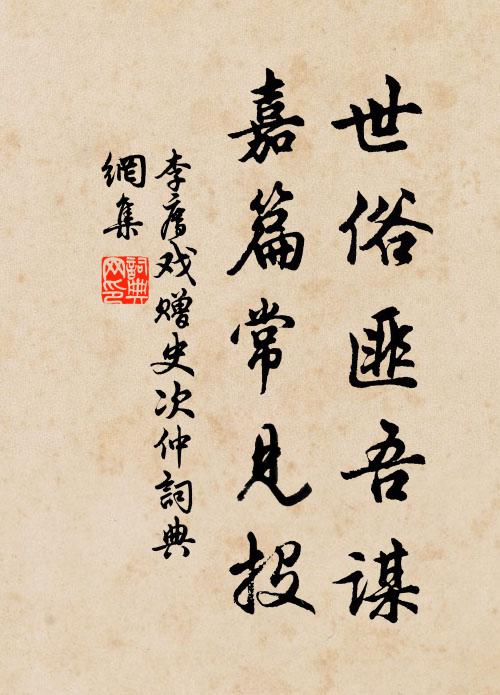 世俗匪吾謀
嘉篇常見投
李廌戏赠史次仲詞典
網集
詞典
网印